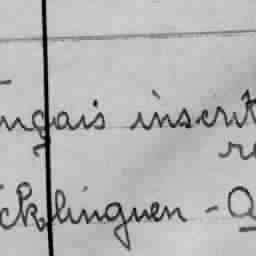 ngais inscrit
r
cklinguen - Q